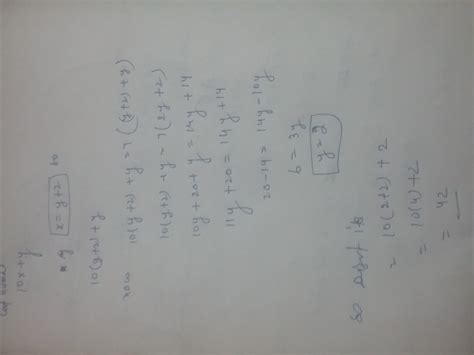 10x+y
x = y+2 so
10(y+2)+y
now 10(y+2)+y = 7((y+2)+y)
10(y+2)+y = 7(2y+2)
10y+20+y = 14y+14
11y+20 = 14y+14
20-14 = 14y-10y
6 = 3y
y = 2
so digit is
= 10(2+2)+2
= 10(4)+2
= 42